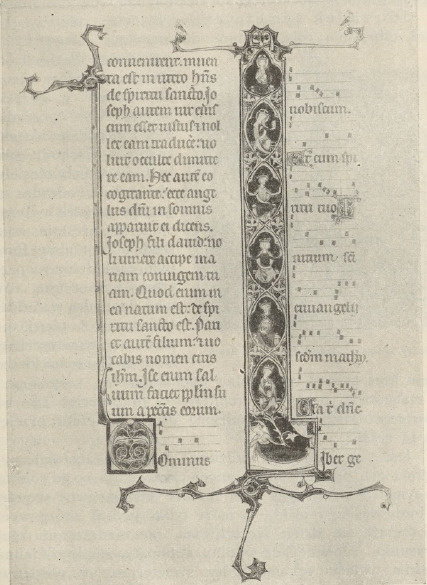 convenirent. inven
ta est in utero hñs
de spiritu sancto. Jo
seph autem vir eius
cum esset iustus ⁊ nol
let eam traducẽ: vo
luit occulte dimitte
re eam. Hec autẽ eo
cogitante: ecce angĩ
lus dñi in somnis
apparuit ei dicens.
Joseph fili david: no
li timere accipe ma
riam coniugem tu
am. Quod enim in
ea natum est: de spi
ritu sancto est. Pari
et autẽ filium: ⁊ vo
cabis nomen eius
ihm. Ipse enim sal
vum faciet pplm su
um a peccĩs eorum.
Ominus
vobiscum.
Et cum spi
ritu tuo
nitium. sci
evvangelij
scdm mathm.
Gla t̃ dñe
Iber ge